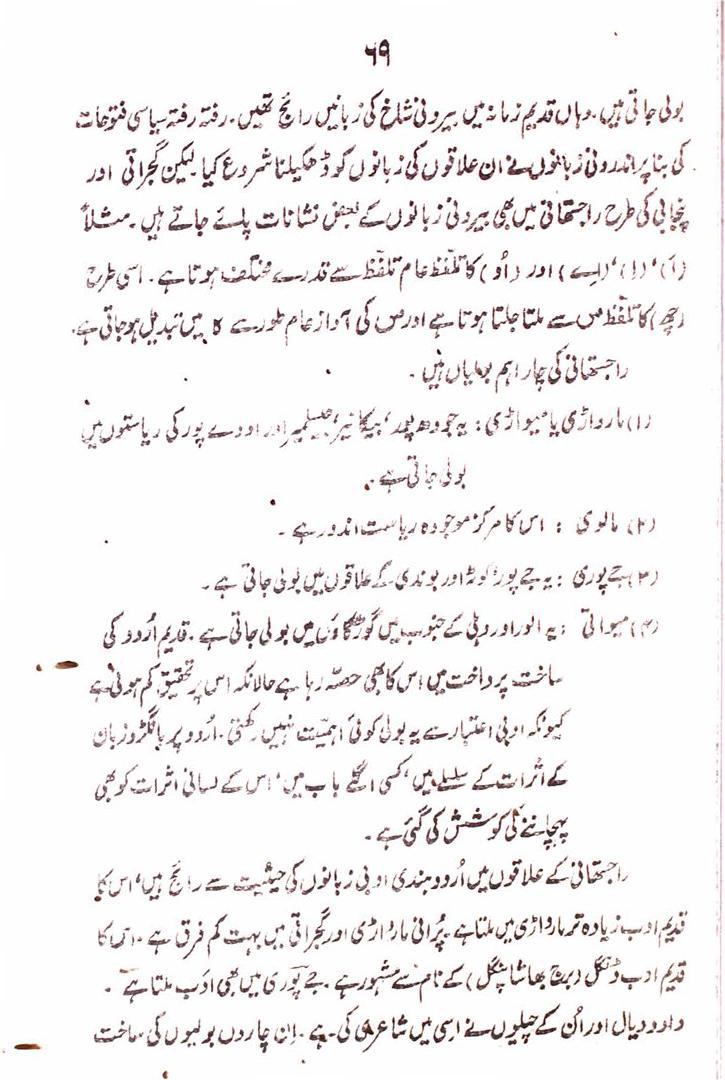 ۶۹
بولی جاتی ہیں۔ وہاں قدیم زمانہ میں بیرونی شاخ کی زبانیں رائج تھیں۔ رفتہ رفتہ سیاسی فتوحات
کی بنا پر اندرونی زبانوں نے ان علاقوں کی زبانوں کو ڈھکیلنا شروع کیا۔ لیکن گجراتی اور
پنجابی کی طرح راجستھانی میں بھی بیرونی زبانوں کے بعض نشانات پائے جاتے ہیں۔ مثلاً
(اَ)، (اِ)، (اے) اور (اُو) کا تلفّظ عام تلفّظ سے قدرے مختلف ہوتا ہے۔ اسی طرح
(چھ) کا تلفّظ س سے ملتا جلتا ہوتا ہے اور س کی آواز عام طور سے ہ میں تبدیل ہو جاتی ہے۔
راجستھانی کی چار اہم بولیاں ہیں۔
(۱) مارواڑی یا میواڑی: یہ جودھ پور، بیکانیر، جیسلمیر اور اودے پور کی ریاستوں میں
بولی جاتی ہے۔
(۲) مالوی : اس کا مرکز موجودہ ریاست اندور ہے۔
(۳) جے پوری : یہ جے پور، کوٹہ اور بوندی کے علاقوں میں بولی جاتی ہے۔
(۴) میواتی : یہ الور اور دہلی کے جنوب میں گوڑگاؤں میں بولی جاتی ہے۔ قدیم اُردو کی
ساخت پرداخت میں اس کا بھی حصّہ رہا ہے حالانکہ اس پر تحقیق کم ہوئی ہے
کیونکہ ادبی اعتبار سے یہ بولی کوئی اہمیّت نہیں رکھتی۔ اُردو پر بانگڑو زبان
کے اثرات کے سلسلے میں، کسی اگلے باب میں، اس کے لسانی اثرات کو بھی
پہچاننے کی کوشش کی گئی ہے۔
راجستھانی کے علاقوں میں اُردو ہندی ادبی زبانوں کی حیثیت سے رائج ہیں، اس کا
قدیم ادب زیادہ تر مارواڑی میں ملتا ہے۔ پُرانی مارواڑی اور گجراتی میں بہت کم فرق ہے۔ اس کا
قدیم ادب ڈنگل (برج بھاشا پنگل) کے نام سے مشہور ہے۔ جے پوری میں بھی ادَب ملتا ہے۔
دادو دیال اور اُن کے چیلوں نے اسی میں شاعری کی ہے۔ اِن چاروں بولیوں کی ساخت